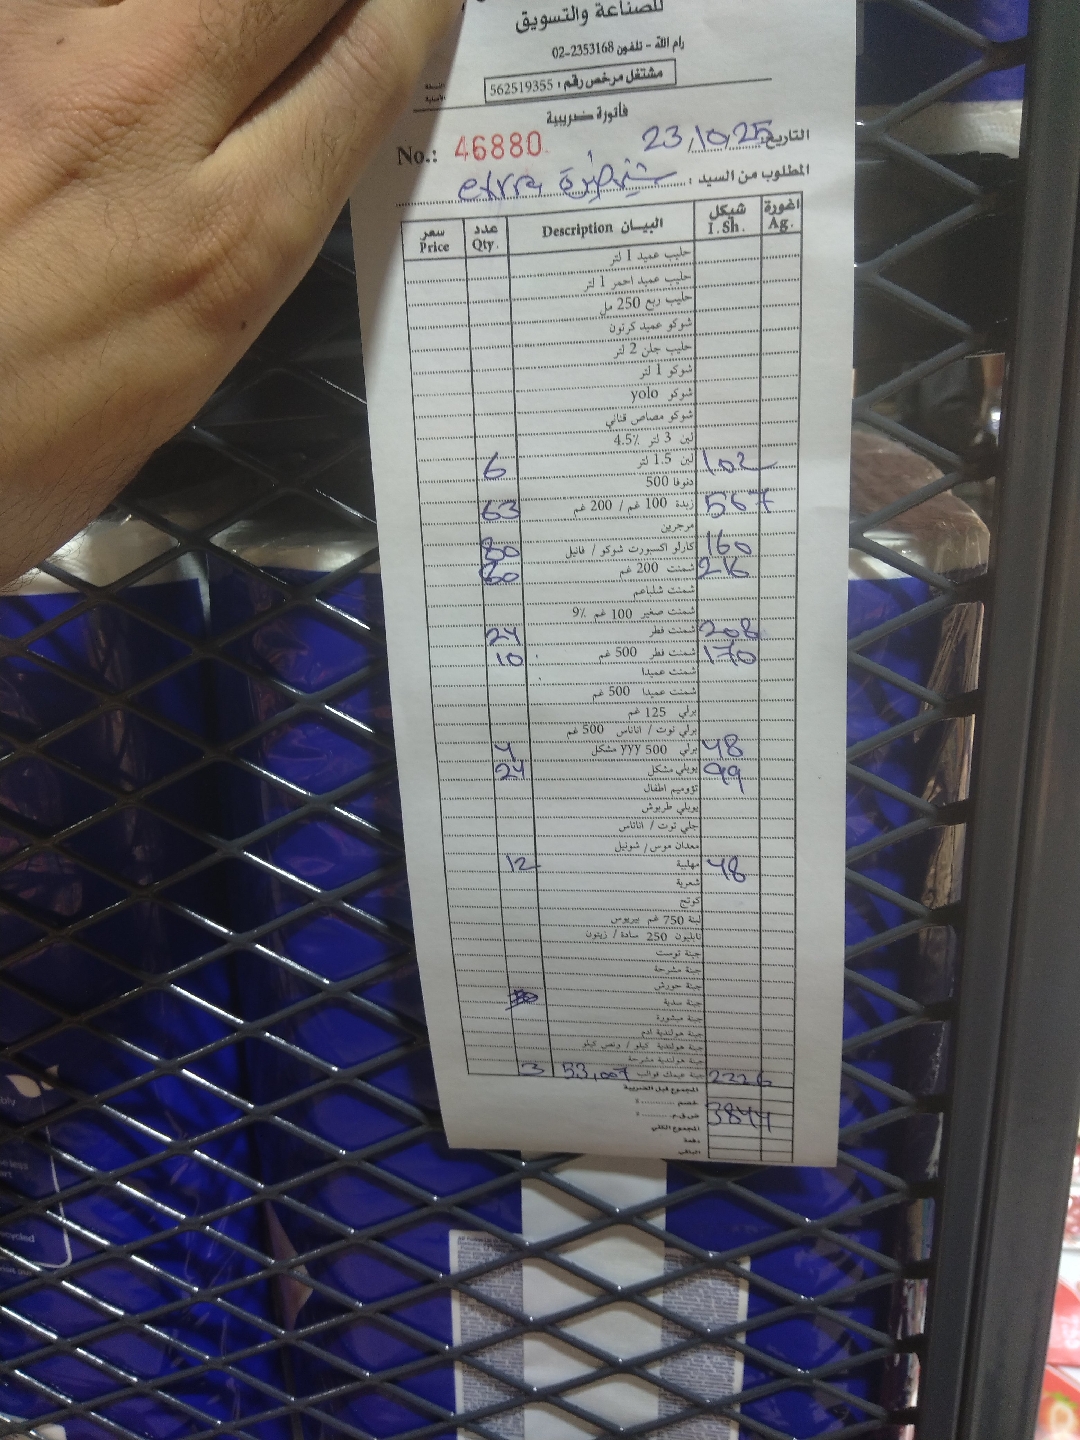 للصناعة والتسويق
رام الله - تلفون 02-2353168
مشتغل مرخص رقم : 562519355
فاتورة ضريبية
No.: 46880 التاريخ 23/10/25
المطلوب من السيد : extra
سعر Price عدد Qty. البيـــان Description شيكل I.Sh. اغورة Ag.
حليب عميد 1 لتر
حليب عميد احمر 1 لتر
حليب ربع 250 مل
شوكو عميد كرتون
حليب جلن 2 لتر
شوكو 1 لتر
شوكو yolo
شوكو مصاص قناني
لبن 3 لتر 4.5%
6 لبن 1.5 لتر 102
دنوفا 500
63 زبدة 100 غم / 200 غم 567
مرجرين
80 كارلو اكسبورت شوكو / فانيل 160
60 شمنت 200 غم 216
شمنت شلباعم
شمنت صغير 100 غم 9%
24 شمنت فطر 208
10 شمنت فطر 500 غم 170
شمنت عميدا
شمنت عميدا 500 غم
برلي 125 غم
برلي توت / اناناس 500 غم
4 برلي 500 yyy مشكل 48
24 يوبلي مشكل 99
تؤوميم اطفال
يوبلي طربوش
جلي توت / اناناس
معدان موس / شونيل
12 مهلبية 48
شعرية
كوتج
لبنة 750 غم بيريوس
نابليون 250 سادة / زيتون
جبنة توست
جبنة مشرحة
جبنة حورش
جبنة سدية
جبنة مبشورة
جبنة هولندية ادم
جبنة هولندية كيلو / ونص كيلو
جبنة هولندية مشرحة
3 جبنة عيمك قوالب 53,007 2226
المجموع قبل الضريبة
خصم ............ :
ض.ق.م. ........ : 3844
المجموع الكلي
دفعة
الباقي